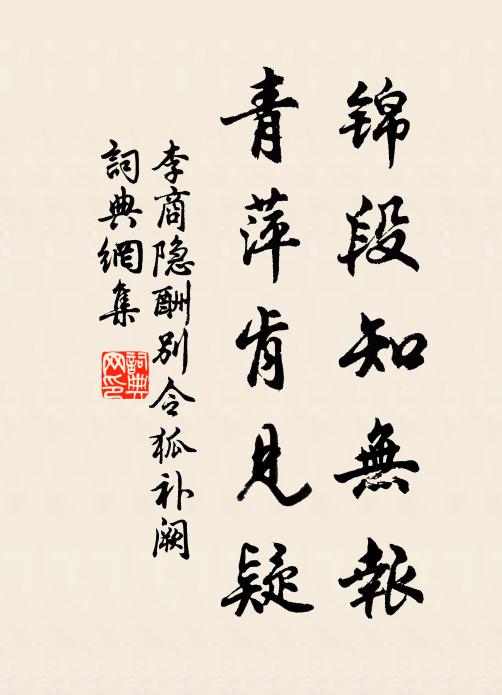 锦段知無報
青萍肯見疑
李商隐酬别令狐补阙
詞典網集
詞典网印